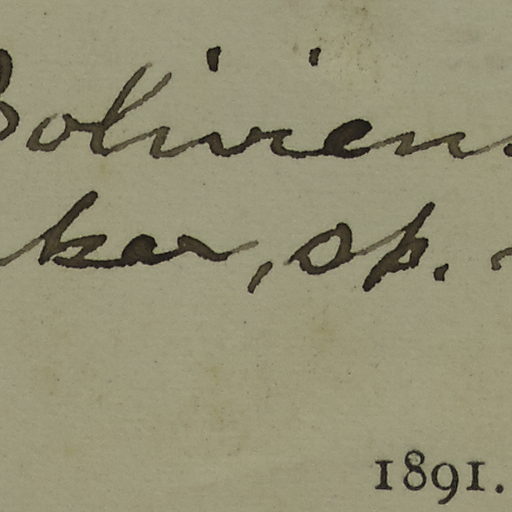 Boliviens
ker, sp.
1891.